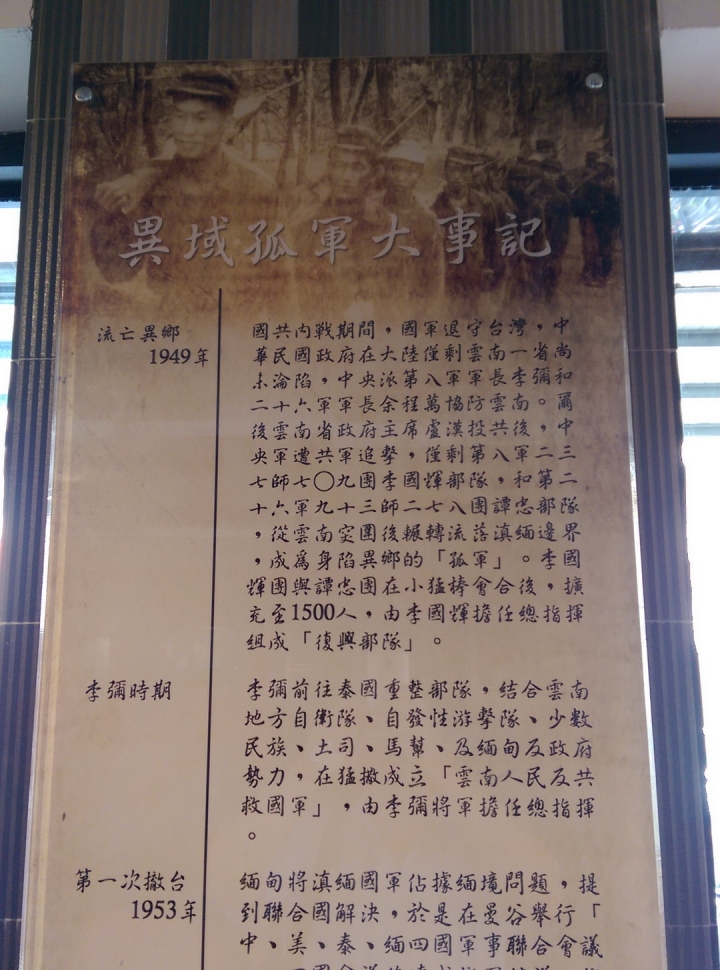 異域孤軍大事記
流亡異鄉
1949年
國共內戰期間，國軍退守台灣，中
華民國政府在大陸僅剩雲南一省尚
未淪陷，中央派第八軍軍長李彌和
二十六軍軍長余程萬協防雲南。爾
後雲南省政府主席盧漢投共後，中
央軍遭共軍追擊，僅剩第八軍二三
七師七〇九團李國輝部隊，和第二
十六軍九十三師二七八團譚忠部隊
，從雲南突圍後輾轉流落滇緬邊界
，成為身陷異鄉的「孤軍」。李國
輝團與譚忠團在小猛捧會合後，擴
充至1500人，由李國輝擔任總指揮
組成「復興部隊」。
李彌時期
李彌前往泰國重整部隊，結合雲南
地方自衛隊、自發性游擊隊、少數
民族、土司、馬幫、及緬甸反政府
勢力，在猛撒成立「雲南人民反共
救國軍」，由李彌將軍擔任總指揮
。
第一次撤台
1953年
緬甸將滇緬國軍佔據緬境問題，提
到聯合國解決，於是在曼谷舉行「
中、美、泰、緬四國軍事聯合會議